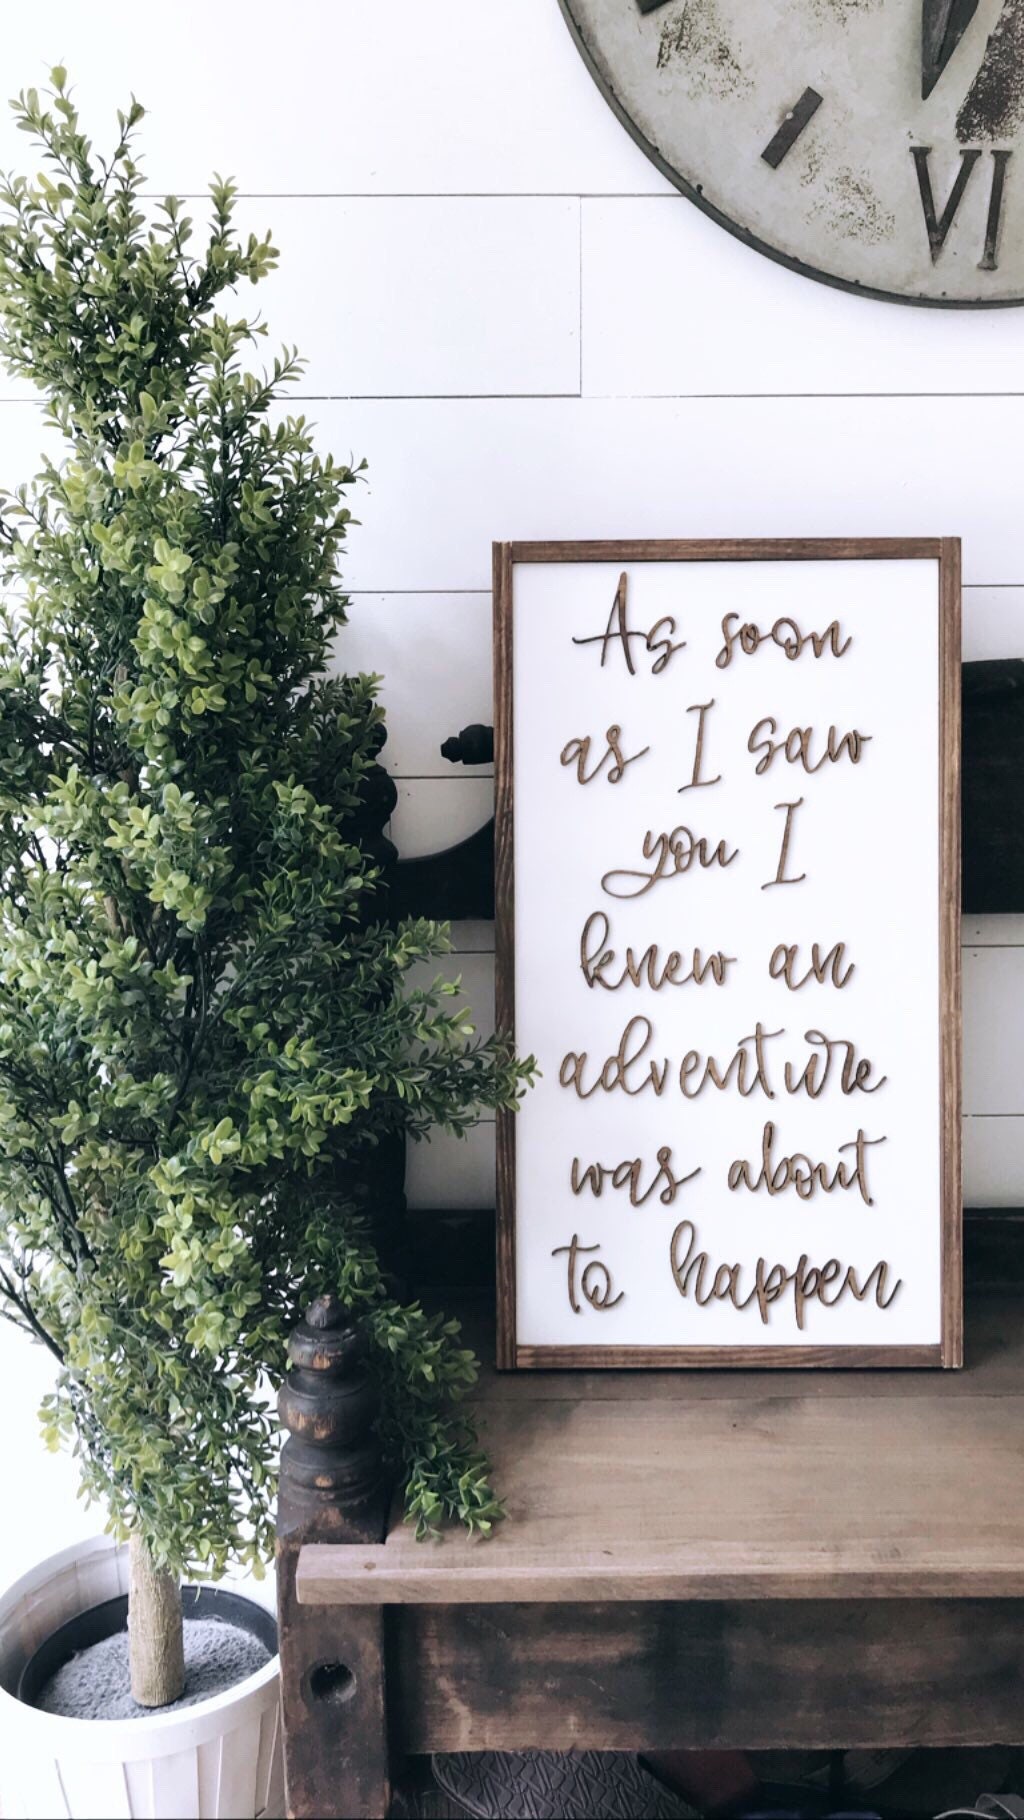 VI
As soon
as I saw
you I
knew an
adventure
was about
to happen